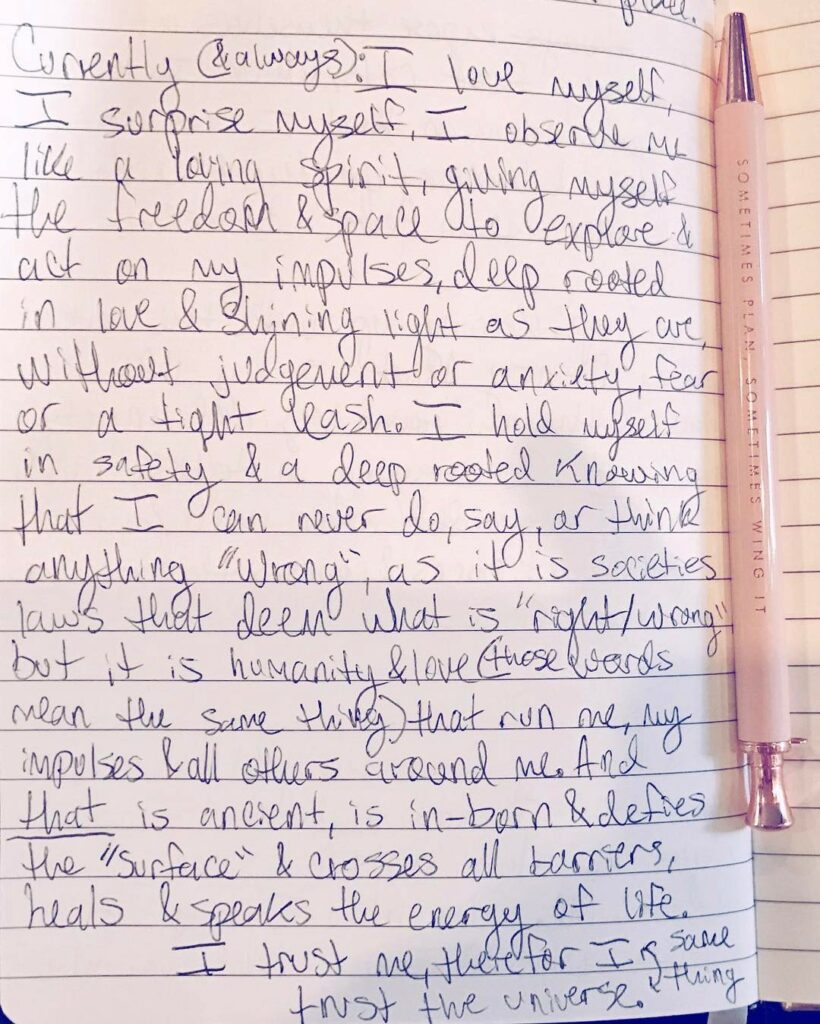 place.
Currently (&always): I love myself,
I surprise myself, I observe me
like a loving spirit, giving myself
the freedom & space to explore &
act on my impulses, deep rooted
in love & shining light as they are,
without judgement or anxiety, fear
or a tight leash. I hold myself
in safety & a deep rooted knowing
that I can never do, say, or think
anything "wrong", as it is societies
laws that deem what is "right/wrong"
but it is humanity & love (those words
mean the same thing) that run me, my
impulses & all others around me. And
that is ancient, is in-born & defies
the "surface" & crosses all barriers,
heals & speaks the energy of life.
I trust me, therefor I same
trust the universe. thing
SOMETIMES PLAN, SOMETIMES WING IT